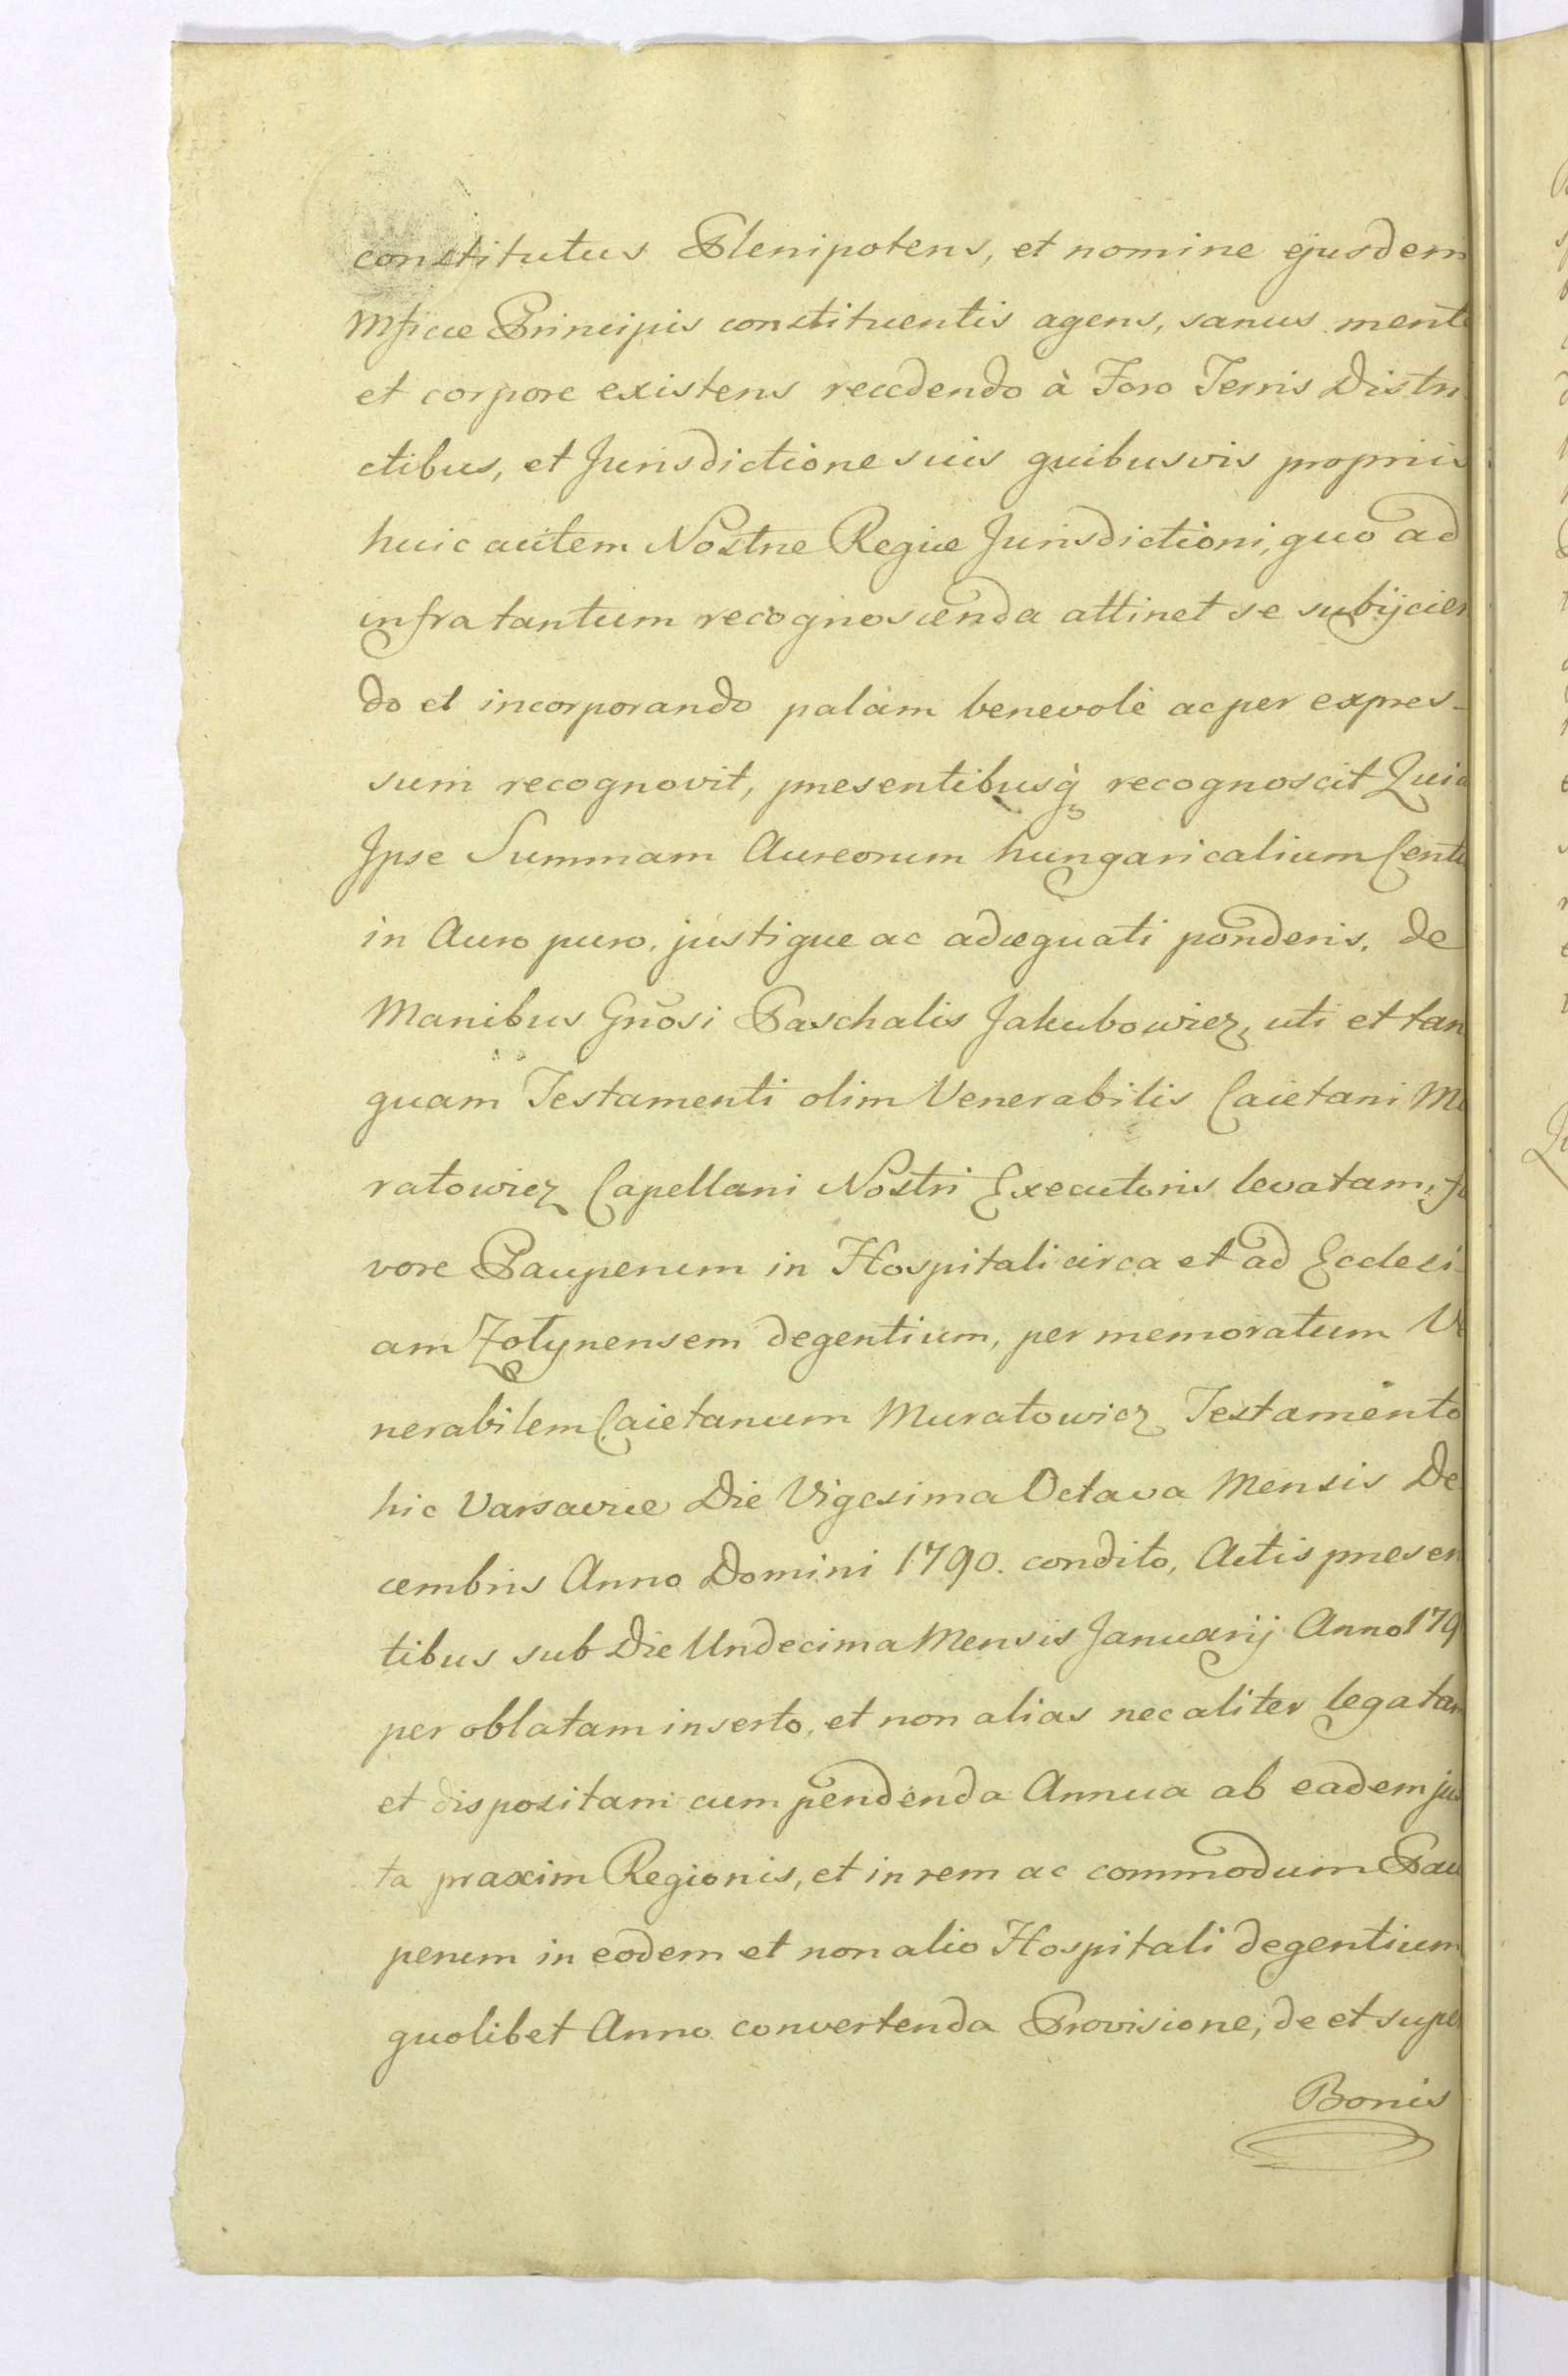 constitutus Plenipotens, et nomine ejusdem
Mficæ Principis constituentis agens, sanus mente
et corpore existens recedendo à Foro Terris Distri
ctibus, et Jurisdictione suis quibusvis proprijs
huic autem Nostræ Regiæ Jurisdictioni, quo ad
infra tantum recognoscenda attinet se subijcien
do et incorporando palàm benevolè ac per expres-
sum recognovit, præsentibusq̀ recognoscit Quia
Ipse Summam Aureorum hungaricalium Centu
in Auro puro, justique ac adæquati ponderis, de
Manibus Gnosi Paschalis Jakubowicz, uti et tan
quam Testamenti olim Venerabilis Caietani Mu
ratowicz Capellani Nostri Executoris levatam, fa
vore Pauperum in Hospitali circa et ad Ecclesi-
am Zołynensem degentium, per memoratum Ve
nerabilem Caietanum Muratowicz Testamento
hic Varsaviæ Die Vigesima Octava Mensis De
cembris Anno Domini 1790. condito, Actis præsen
tibus sub Die Undecima Mensis Januarij Anno 179
per oblatam inserto, et non alias nec aliter legatam
et dispositam cum pendenda Annua ab eadem jux
ta praxim Regionis, et in rem ac commodum Pau
perum in eodem et non alio Hospitali degentium
quolibet Anno convertenda Provisione, de et super
Bonis